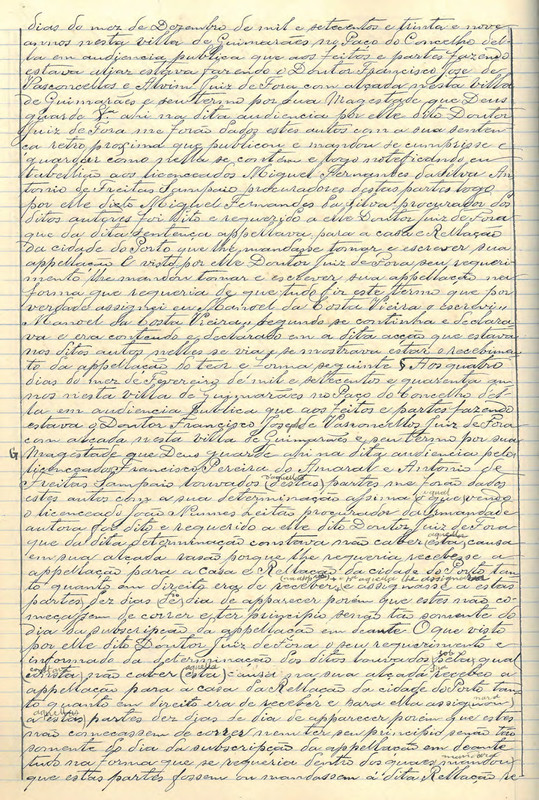 dias do mez de Dezembro de mil e setecentos e trinta e nove
annos nesta villa de Guimarães no Paço do Concelho del-
la em audiencia publica que aos feitos e partes fazendo
estava aliaz estava fazendo o Doutor Francisco José de
Vasconcellos e Alvim Juiz de Fora com alçada nesta villa
de Guimarães e seu termo por sua Magestade que Deus
guarde V.ª ahi na dita audiencia por elle dito Doutor
Juiz de Fora me forão dados estes autos com a sua senten
ça retro proxima que publicou e mandou se cumprisse e
guardar como nella se contem e logo notefiquei eu
tabellião aos licenceados Miguel Fernandes da Silva An
tonio de Freitas Sampaio procuradores destas partes logo
por elle dito Miguel Fernandes da Silva procurador dos
ditos autores foi dito e requerido a elle Doutor Juiz de Fora
que da dita sentença appellava para a casa e Rellação
da cidade do Porto que lhe mandasse tomar e escrever sua
appellação E visto por elle Doutor Juiz de Fora seu requeri-
mento lhe mandou tomar e escrever sua appellação na
forma que requeria de que tudo fiz este termo que por
verdade assignei eu Manoel da Costa Vieira o escrevi
Manoel da Costa Vieira, segundo se continha e declara-
va e era contendo e declarado em a dita acção que estava
nos ditos autos nelles se via e se mostrava estar o recebimen
to da appellação do teor e forma seguinte § Aos quatro
dias do mez de Fevereiro de mil e setecentos e quarenta an
nos nesta villa de Guimarães no Paço do Concelho del-
la em audiencia publica que aos feitos e partes fazendo
estava o Doutor Francisco Joseph de Vasconcellos Juiz de Fora
com alçada nesta villa de Guimarães e seu termo por sua
G Magestade que Deus guarde ahi na dita audiencia pelos
licenceados Francisco Pereira do Amaral e Antonio de
Freitas Sampaio louvados destas partes me forão dados
estes autos com a sua determinação assima o que vendo
o licenceado João Nunnes Leitão procurador da Irmandade
autora foi dito e requerido a elle dito Doutor Juiz de Fora
que da dita determinação constava não caber (esta) causa
em sua alçada rasão porque lhe requeria recebesse a
appellação para a casa e Rellação da cidade do Porto tan
to quanto em direito era de receber e assignasse a estas
partes dez dias de dia de apparecer porem que estes não co-
meçassem de correr e ter principio senão tão somente do
dia da subscripção da appellação em deante O que visto
por elle dito Doutor Juiz de Fora o seu requerimento e
informado da determinação dos ditos louvados pelas qual
não caber (esta) causa na sua alçada recebeo a
appellação para a casa da Rellação da cidade do Porto tan
to quanto em direito era de receber e para ella assignou
a estas partes dez dias de dia de apparecer porem que estes
não comecassem de correr nem ter seu principio senão tão
somente do dia da subscripção da appellação em deante
tudo na forma que se requeria dentro dos quaes mandou
que estas partes fossem ou mandassem á dita Rellação re-